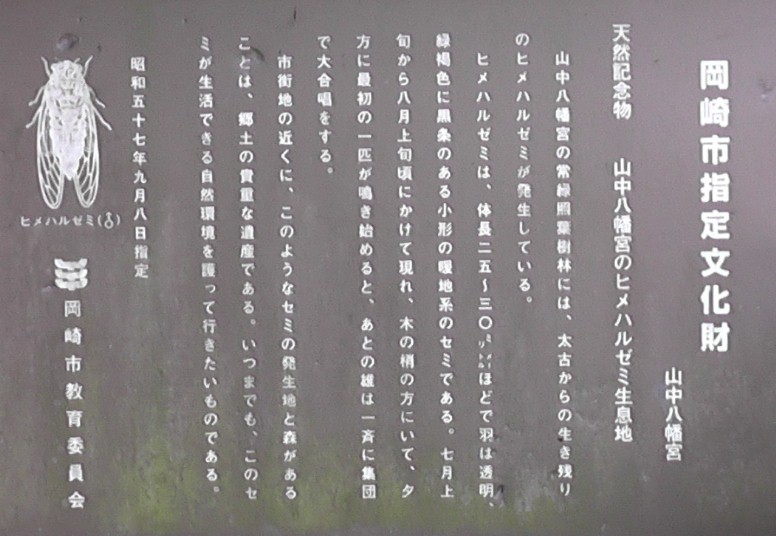 岡崎市指定文化財
山中八幡宮
天然記念物　山中八幡宮のヒメハルゼミ生息地
山中八幡宮の常緑照葉樹林には、太古からの生き残り
のヒメハルゼミが発生している。
ヒメハルゼミは、体長二五〜三〇ミリメートルほどで羽は透明、
緑褐色に黒条のある小形の暖地系のセミである。七月上
旬から八月上旬頃にかけて現れ、木の梢の方にいて、夕
方に最初の一匹が鳴き始めると、あとの雄は一斉に集団
で大合唱をする。
市街地の近くに、このようなセミの発生地と森がある
ことは、郷土の貴重な遺産である。いつまでも、このセ
ミが生活できる自然環境を護って行きたいものである。
昭和五十七年九月八日指定
ヒメハルゼミ(♂)
岡崎市教育委員会